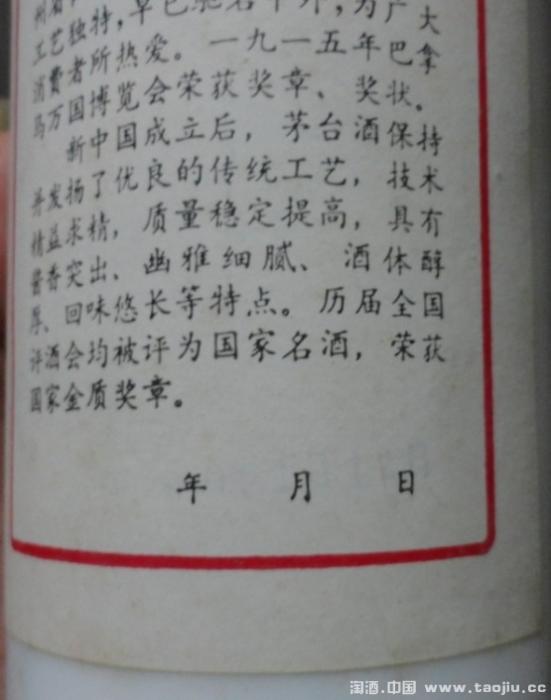 工艺独特，早已驰名中外，为广大
消费者所热爱。一九一五年巴拿
马万国博览会荣获奖章、奖状。
新中国成立后，茅台酒保持
并发扬了优良的传统工艺，技术
精益求精，质量稳定提高，具有
酱香突出、幽雅细腻、酒体醇
厚、回味悠长等特点。历届全国
评酒会均被评为国家名酒，荣获
国家金质奖章。
年 月 日
淘酒.中国 www.taojiu.cc